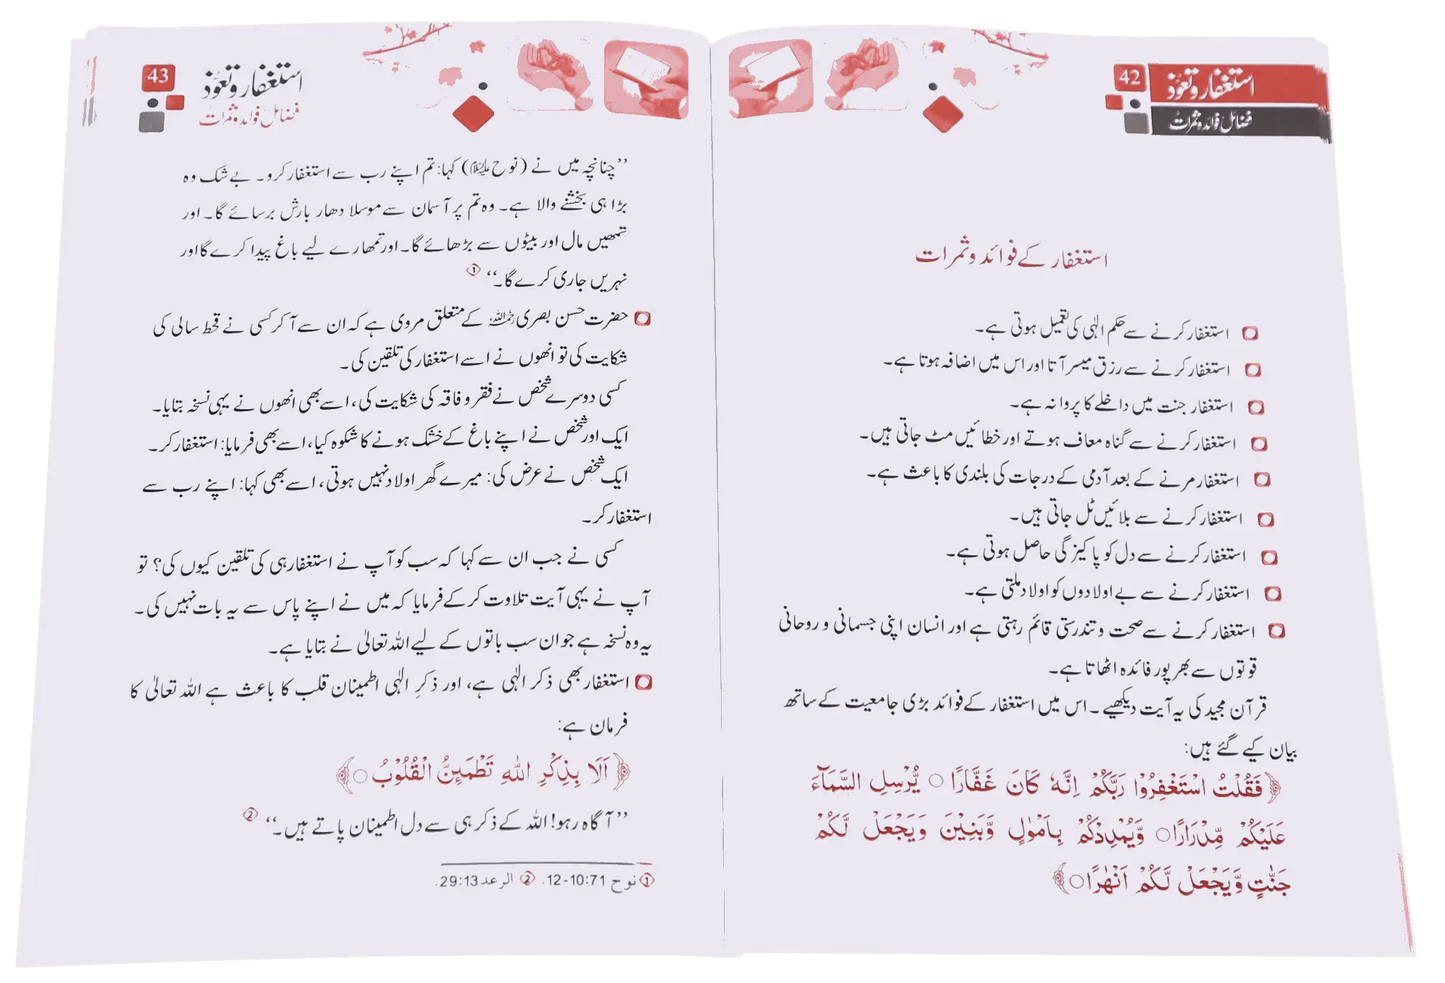 42
استغفار و تعوّذ
فضائل فوائد و ثمرات
استغفار کے فوائد و ثمرات
استغفار کرنے سے حکم الٰہی کی تعمیل ہوتی ہے۔
استغفار کرنے سے رزق میسر آتا اور اس میں اضافہ ہوتا ہے۔
استغفار جنت میں داخلے کا پروانہ ہے۔
استغفار کرنے سے گناہ معاف ہوتے اور خطائیں مٹ جاتی ہیں۔
استغفار مرنے کے بعد آدمی کے درجات کی بلندی کا باعث ہے۔
استغفار کرنے سے بلائیں ٹل جاتی ہیں۔
استغفار کرنے سے دل کو پاکیزگی حاصل ہوتی ہے۔
استغفار کرنے سے بے اولادوں کو اولاد ملتی ہے۔
استغفار کرنے سے صحت و تندرستی قائم رہتی ہے اور انسان اپنی جسمانی و روحانی
قوتوں سے بھرپور فائدہ اٹھاتا ہے۔
قرآن مجید کی یہ آیت دیکھیے۔ اس میں استغفار کے فوائد بڑی جامعیت کے ساتھ
بیان کیے گئے ہیں:
﴿فَقُلْتُ اسْتَغْفِرُوْا رَبَّكُمْ اِنَّهٗ كَانَ غَفَّارًا ○ يُّرْسِلِ السَّمَآءَ
عَلَيْكُمْ مِّدْرَارًا○ وَّيُمْدِدْكُمْ بِاَمْوٰلٍ وَّبَنِيْنَ وَيَجْعَلْ لَّكُمْ
جَنّٰتٍ وَّيَجْعَلْ لَّكُمْ اَنْهٰرًا○﴾
43
استغفار و تعوّذ
فضائل فوائد و ثمرات
’’چنانچہ میں نے (نوح علیہ السلام) کہا: تم اپنے رب سے استغفار کرو۔ بے شک وہ
بڑا ہی بخشنے والا ہے۔ وہ تم پر آسمان سے موسلا دھار بارش برسائے گا۔ اور
تمھیں مال اور بیٹوں سے بڑھائے گا۔ اور تمھارے لیے باغ پیدا کرے گا اور
نہریں جاری کرے گا۔‘‘ ①
حضرت حسن بصری رحمہ اللہ کے متعلق مروی ہے کہ ان سے آ کر کسی نے قحط سالی کی
شکایت کی تو انھوں نے اسے استغفار کی تلقین کی۔
کسی دوسرے شخص نے فقر و فاقہ کی شکایت کی، اسے بھی انھوں نے یہی نسخہ بتایا۔
ایک اور شخص نے اپنے باغ کے خشک ہونے کا شکوہ کیا، اسے بھی فرمایا: استغفار کر۔
ایک شخص نے عرض کی: میرے گھر اولاد نہیں ہوتی، اسے بھی کہا: اپنے رب سے
استغفار کر۔
کسی نے جب ان سے کہا کہ سب کو آپ نے استغفار ہی کی تلقین کیوں کی؟ تو
آپ نے یہی آیت تلاوت کر کے فرمایا کہ میں نے اپنے پاس سے یہ بات نہیں کی۔
یہ وہ نسخہ ہے جو ان سب باتوں کے لیے اللہ تعالیٰ نے بتایا ہے۔
استغفار بھی ذکر الٰہی ہے، اور ذکرِ الٰہی اطمینان قلب کا باعث ہے اللہ تعالیٰ کا
فرمان ہے:
﴿اَلَا بِذِكْرِ اللّٰهِ تَطْمَئِنُّ الْقُلُوْبُ○﴾
’’آگاہ رہو! اللہ کے ذکر ہی سے دل اطمینان پاتے ہیں۔‘‘ ②
① نوح 71:10-12. ② الرعد 13:29.